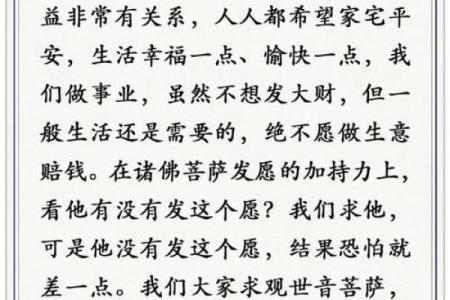 益非常有关系，人人都希望家宅平
安，生活幸福一点、愉快一点，我
们做事业，虽然不想发大财，但一
般生活还是需要的，绝不愿做生意
赔钱。在诸佛菩萨发愿的加持力上，
看他有没有发这个愿？我们求他，
可是他没有发这个愿，结果恐怕就
差一点。我们大家求观世音菩萨，